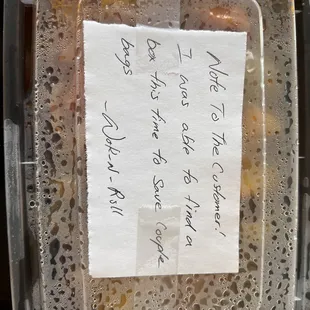 Note To The Customer!
I was able to find a
box this time to save couple
bags
-Wok-N-Roll